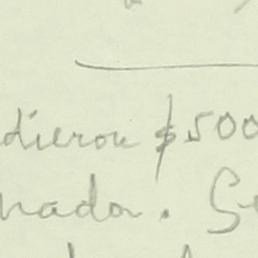 dieron $500
nador. Se